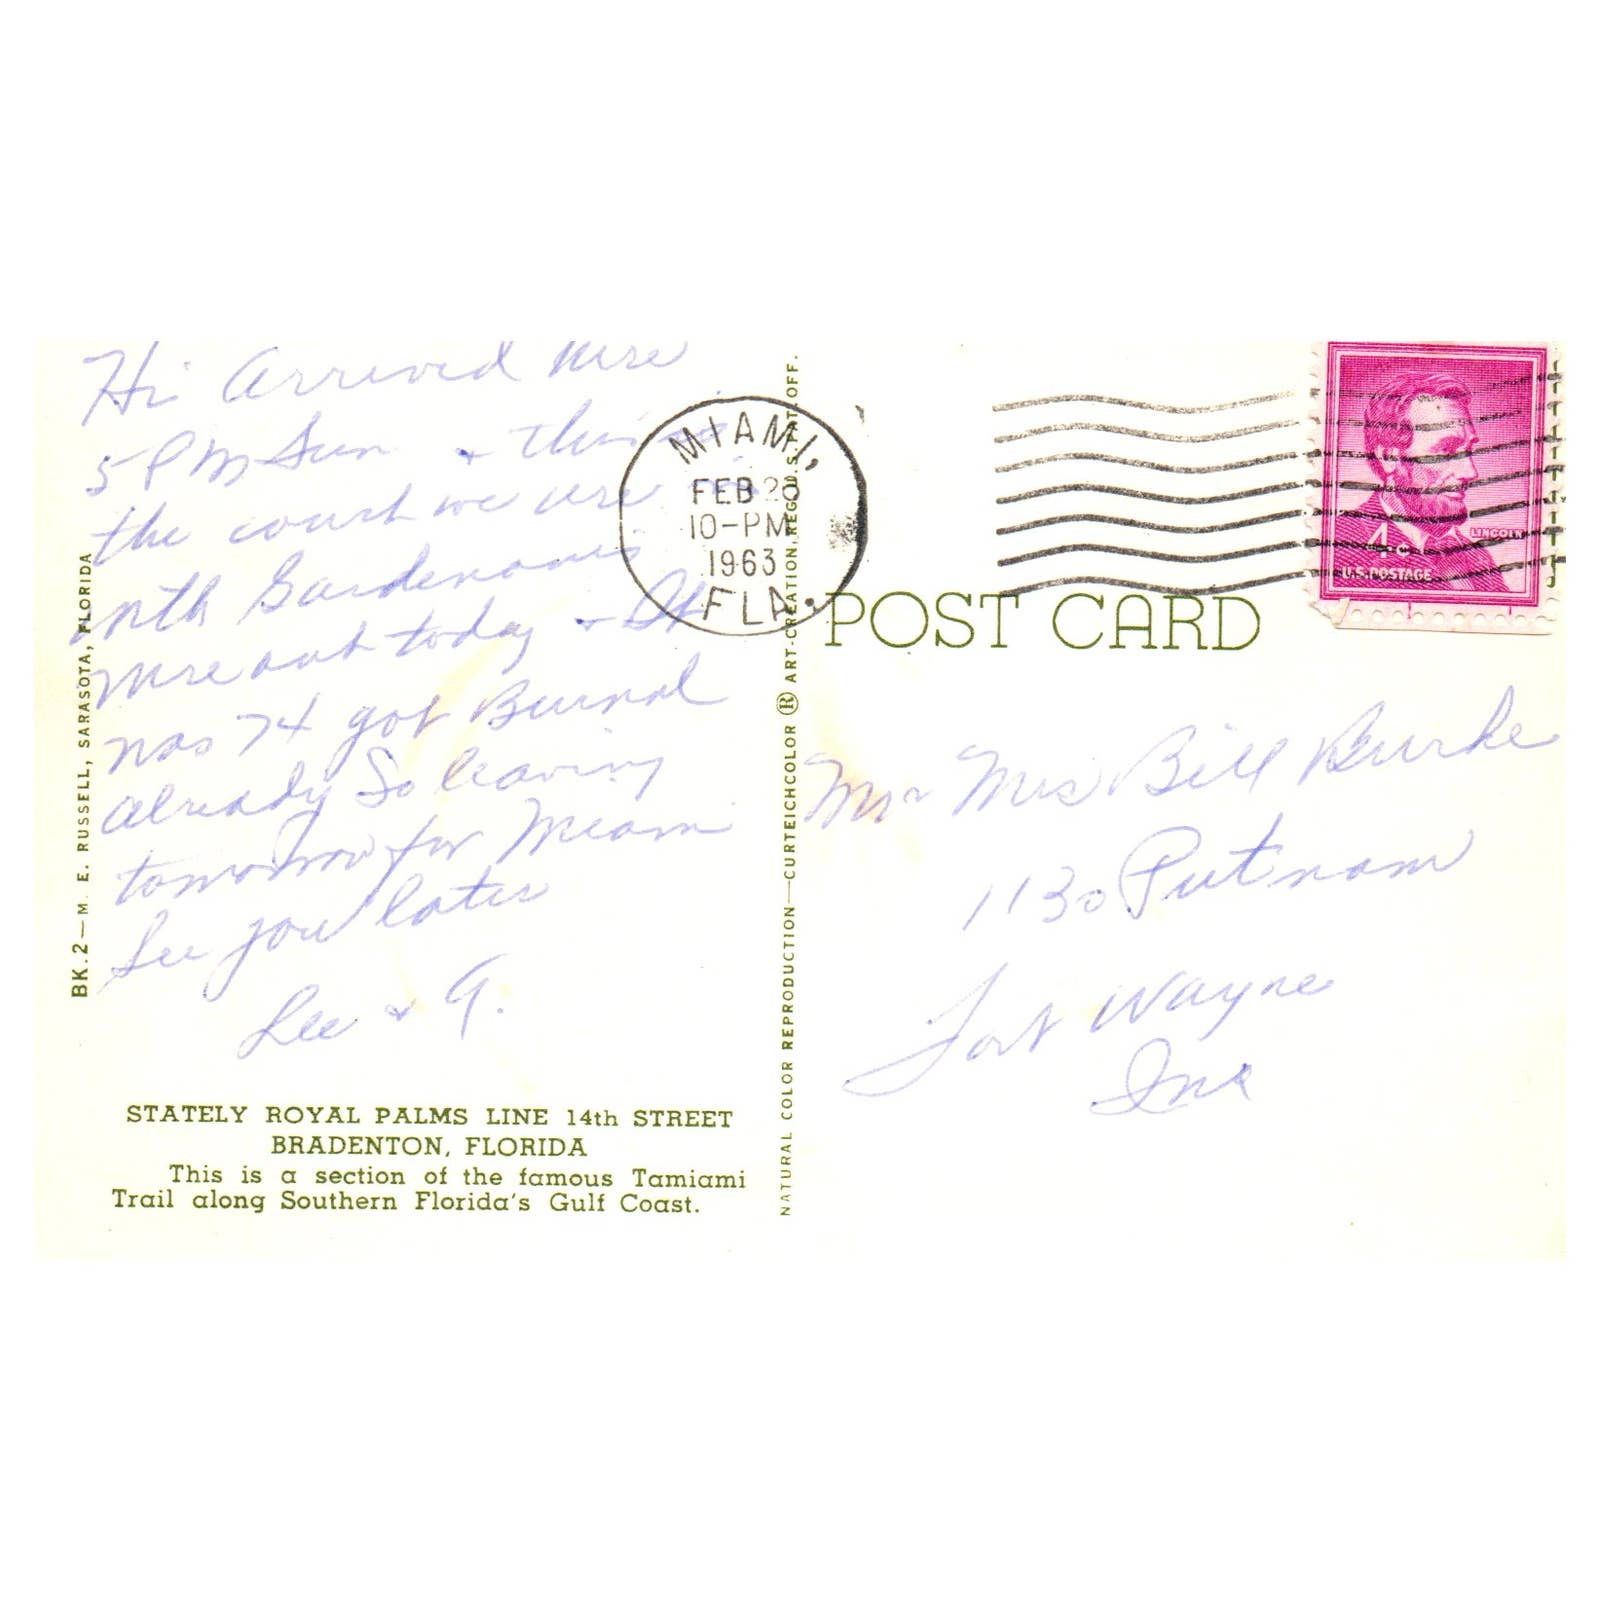 Hi Arrived here
5 PM Sun + this is
the court we are in
with Gardenomis
were out today + It
was 74 got Burned
already So leaving
tomorrow for Miami
See you later
Lee + G.
STATELY ROYAL PALMS LINE 14th STREET
BRADENTON, FLORIDA
This is a section of the famous Tamiami
Trail along Southern Florida's Gulf Coast.
BK.2—M. E. RUSSELL, SARASOTA, FLORIDA
NATURAL COLOR REPRODUCTION—CURTEICHCOLOR ® ART-CREATION, REG. U.S. PAT. OFF.
MIAMI,
FEB 26
10-PM
1963
FLA.
POST CARD
LINCOLN
4c
U.S. POSTAGE
Mr Mrs Bill Burke
1130 Putnam
Fort Wayne
Ind